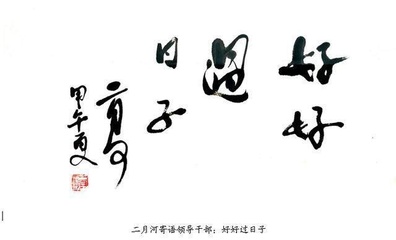 好好
過
日子
二月河
甲午夏
二月河寄语领导干部：好好过日子